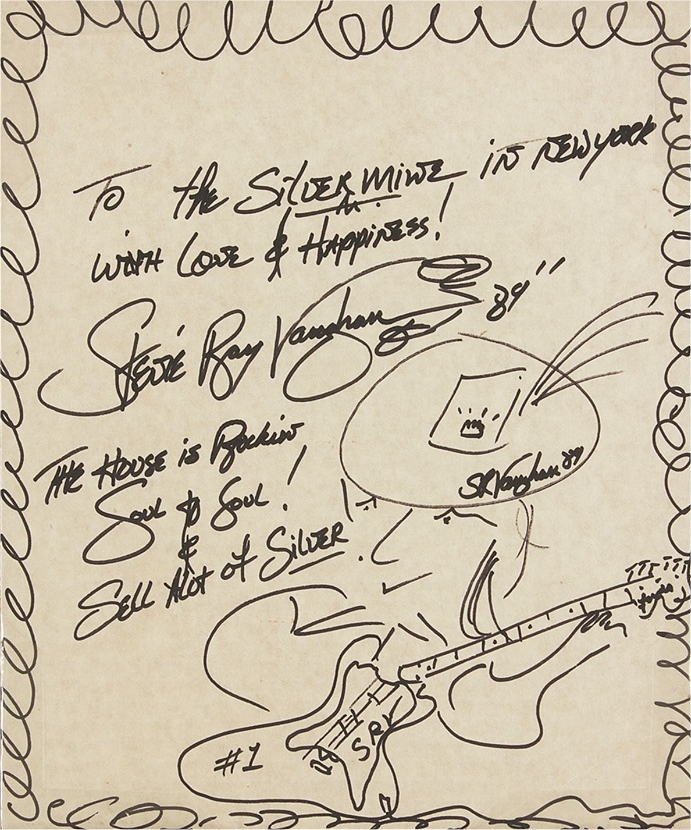 To the SilVER MiNE iN NEW YORK
WiTH LOVE & HAppiNESS!
Stevie Ray Vaughan 89''
THE HOUSE is Rockin
Soul to Soul!
&
SELL Alot of SilVER
SRVaughan 89
SRV
#1